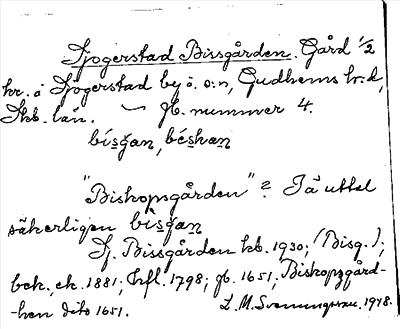 Tjogerstad Bissgården. Gård 1/2
kr. i Tjogerstad by i. o:n, Gudhems hr:d,
Skb. län. — Jb. nummer 4.
bísgan, béshan
"Biskopsgården"? Så uttal
säkerligen bìsgan
Tj. Bissgården kb. 1930; (Bisg.);
bok. ek. 1881; 1798; jb. 1651; Biskopzgård-
-hen dito 1651. L. M. Svenungsson. 1948.